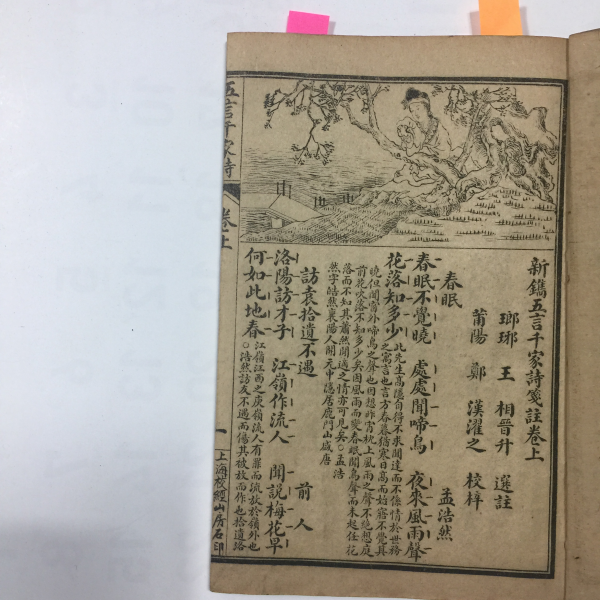 新鐫五言千家詩箋註卷上
瑯琊 王 相晉升 選註
莆陽 鄭 漢濯之 校梓
春眠 孟浩然
春眠不覺曉 處處聞啼鳥 夜來風雨聲
花落知多少 此先生高隱自得不求聞達而不係情於世務
之寓言也言方春暮猶寒日高而始寤不覺其
曉但聞窗外啼鳥之聲也因想昨宵枕上風雨之聲不絕想庭
前花吹落不知多少矣因風雨而變春眠聞鳥聲而未起任花
落而不知其蕭然閒適之情亦可見矣○孟浩
然字浩然襄陽人開元中隱居鹿門山盛唐
訪袁拾遺不遇 前人
洛陽訪才子 江嶺作流人 聞說梅花早
何如此地春 江嶺江西之庾嶺流人有罪而流放於嶺外也
○浩然訪友不遇而傷其被放而作也拾遺路
五言千家詩 卷上
一
上海校經山房石印